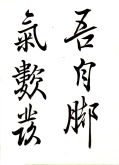 吾自脚
氣數發